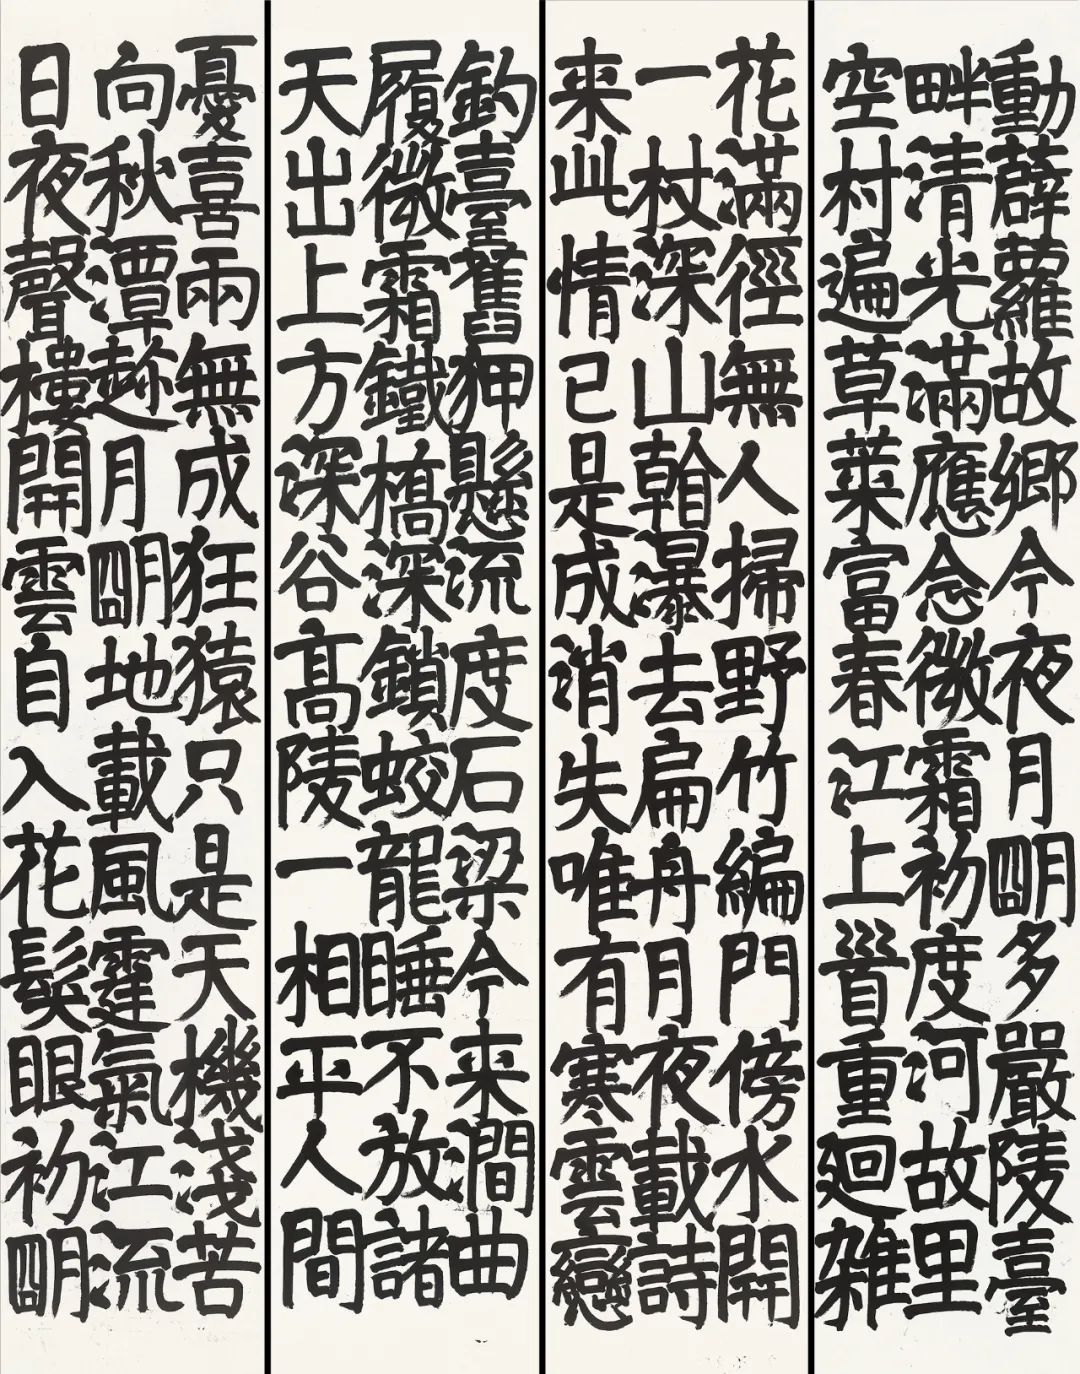 動薜蘿故鄉今夜月明多嚴陵臺
畔清光滿應念微霜初度河故里
空村遍草萊富春江上首重廻雑
花滿徑無人掃野竹編門傍水開
一杖深山翰瀑去扁舟月夜載詩
来此情已是成消失唯有寒雲戀
釣臺舊狎懸流度石梁今来澗曲
履微霜鐵橋深鎖蛟龍睡不放諸
天出上方深谷高陵一相平人間
憂喜兩無成狂猿只是天機淺苦
向秋潭趁月明地載風霆氣江流
日夜聲樓開雲自入花髮眼初明